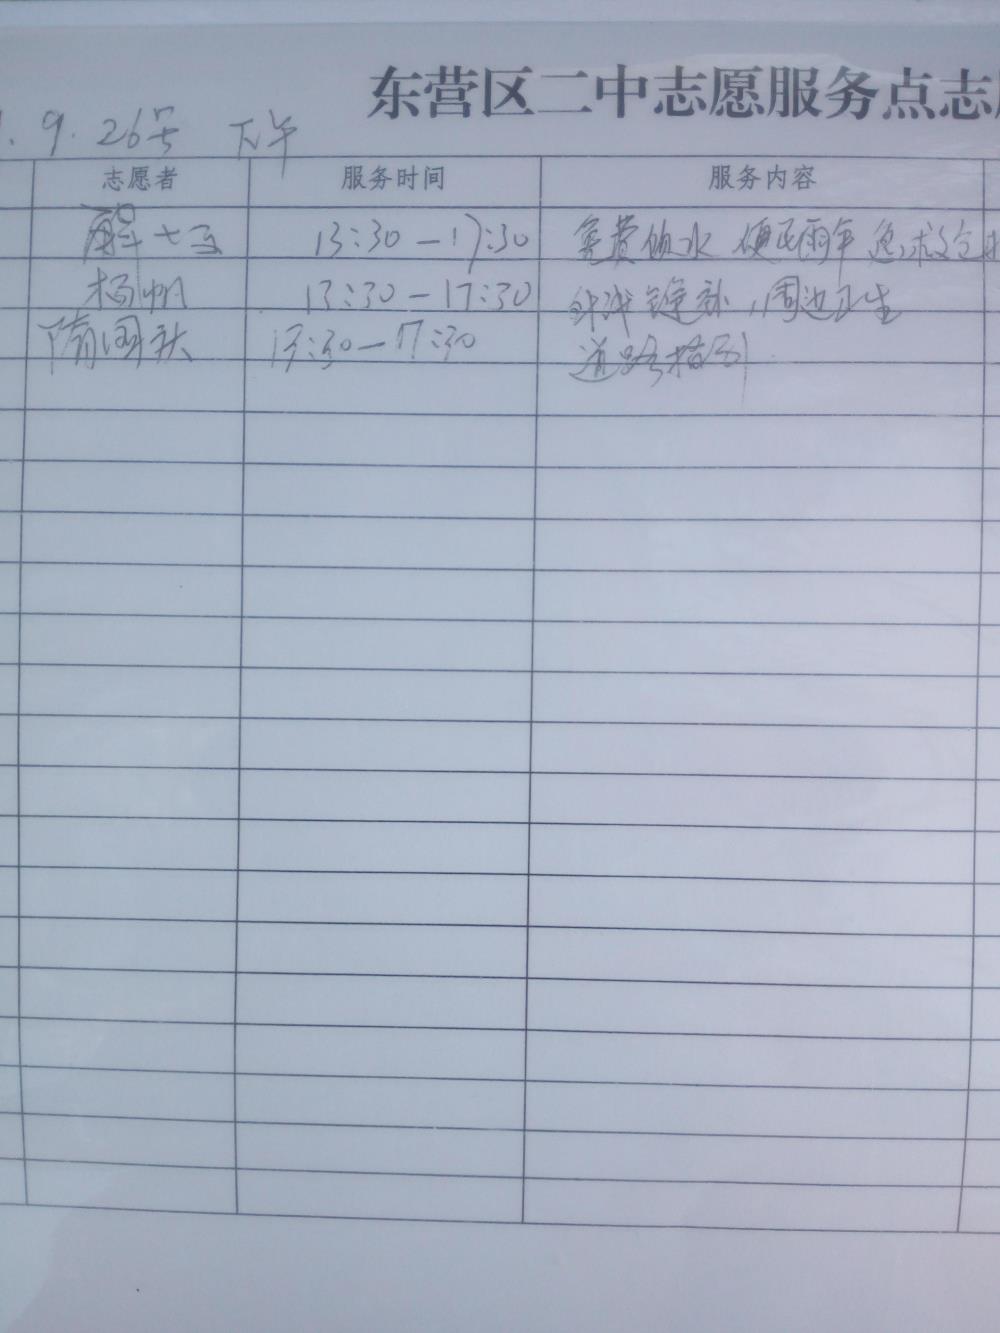 东营区二中志愿服务点志
9.26号 下午
志愿者 服务时间 服务内容
13:30-17:30 免费饮水 便民雨伞 急救包
杨帆 13:30-17:30 针线缝补,周边卫生
隋国跃 13:30-17:30 道路指引